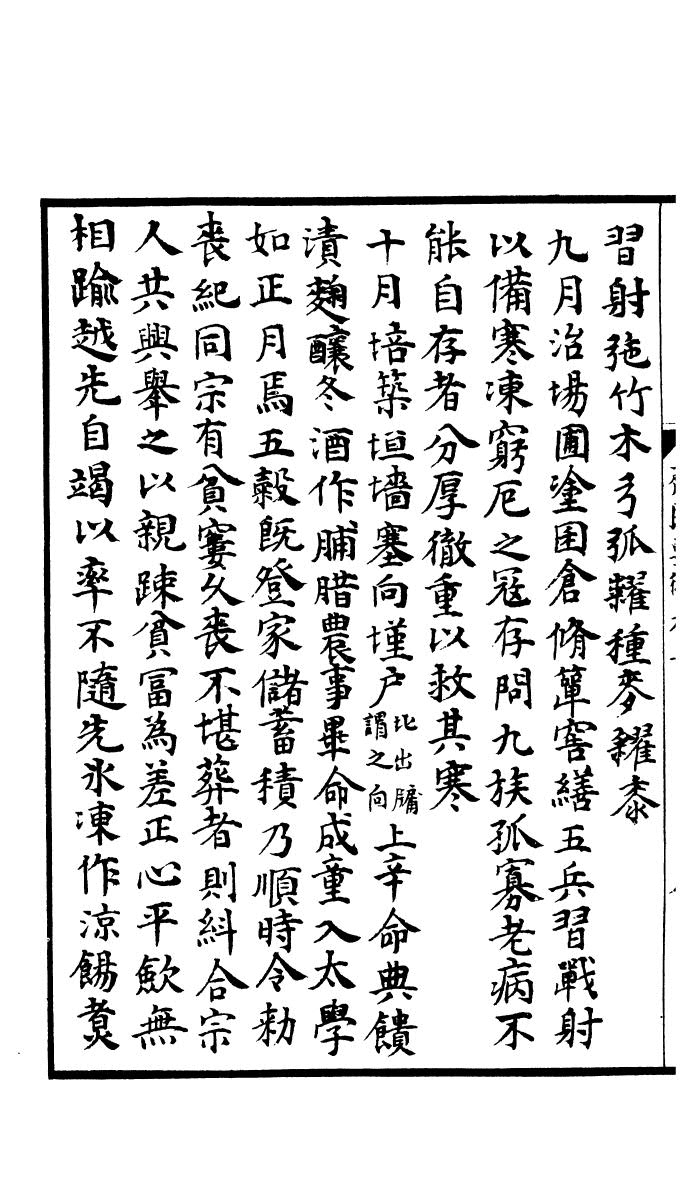 習射弛竹木弓弧糴種麥糶黍
九月治場圃塗囷倉脩簞窖繕五兵習戰射
以備寒凍窮厄之冦存問九族孤寡老病不
能自存者分厚徹重以救其寒
十月培築垣墻塞向墐户北出牖謂之向上辛命典饋
漬麹釀冬酒作脯腊農事畢命成童入太學
如正月焉五穀既登家儲蓄積乃順時令勑
喪紀同宗有貧窶久喪不堪葬者則糾合宗
人共與舉之以親踈貧冨為差正心平歛無
相踰越先自竭以率不隨先氷凍作涼餳煑